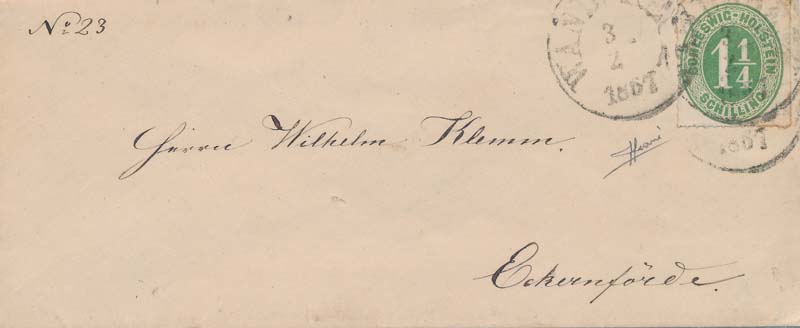 No 23
3
2
1867
SCHLESWIG-HOLSTEIN
1 1/4
SCHILLING
1867
Herrn Wilhelm Klemm.
Eckernförde.